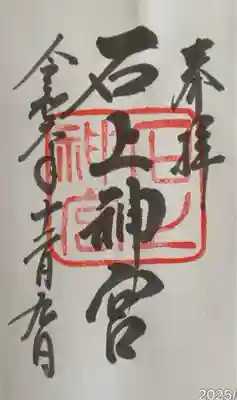 奉拝
石上神宮
石上神宮
令和六年十二月九日
2025/